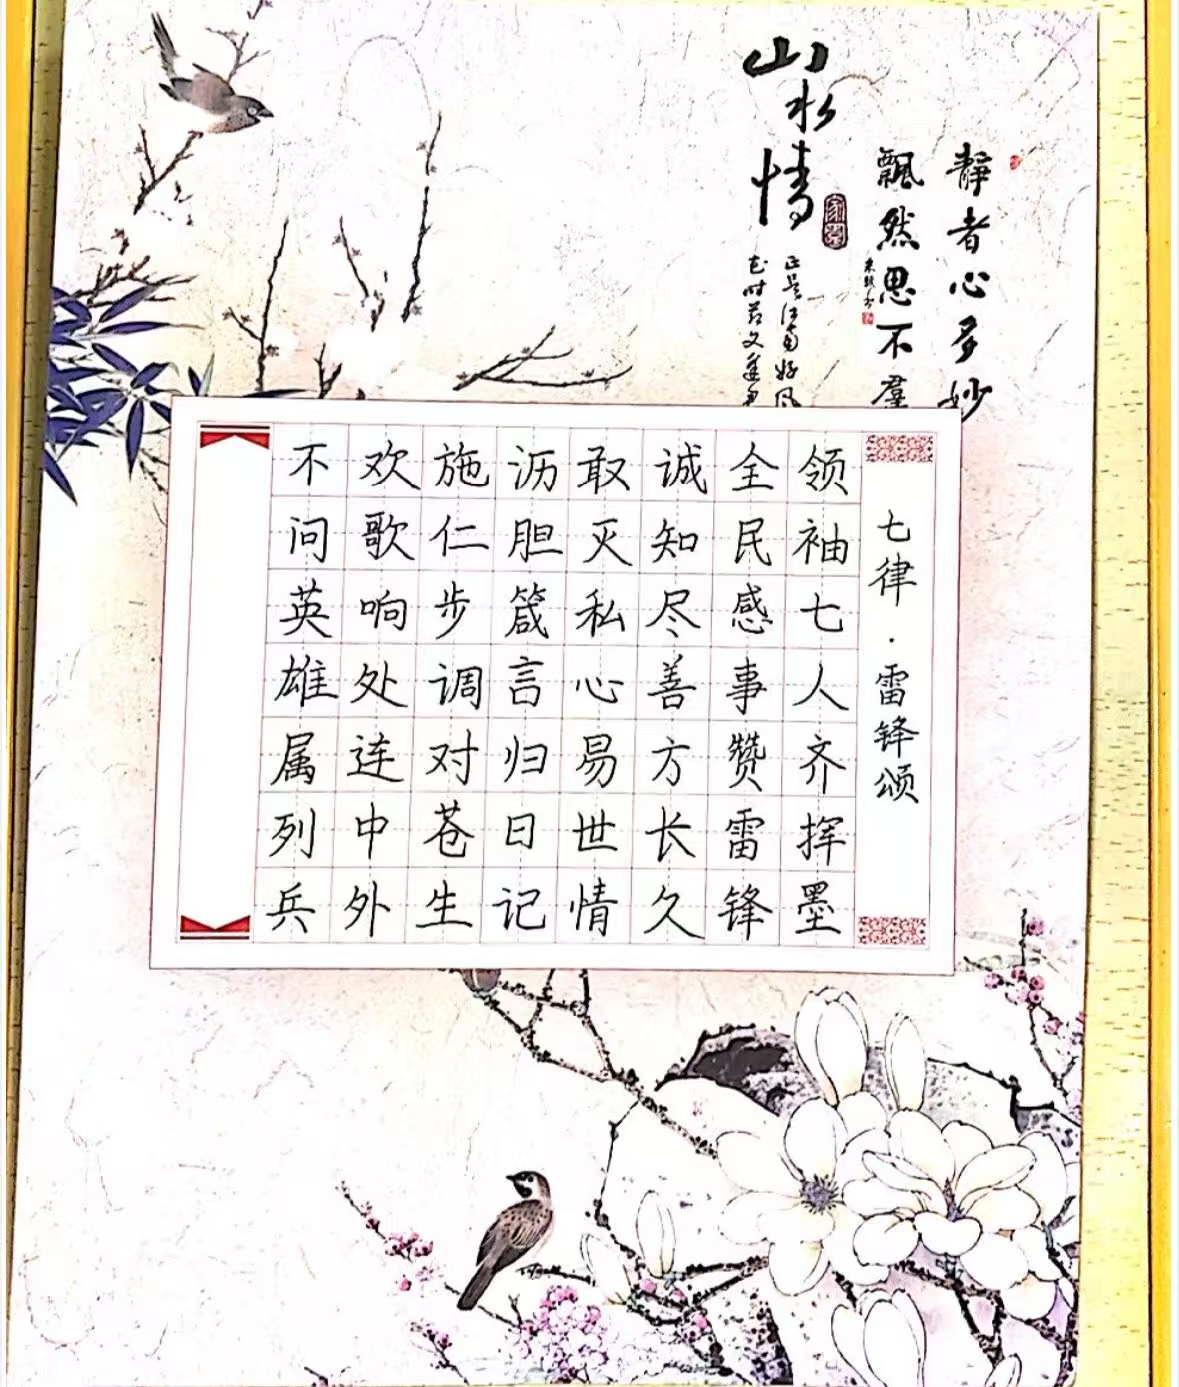 山水情
正是江南好风
花时节又逢君
靜者心多妙
飄然思不羣
七律·雷锋颂
领袖七人齐挥墨
全民感事赞雷锋
诚知尽善方长久
敢灭私心易世情
沥胆箴言归日记
施仁步调对苍生
欢歌响处连中外
不问英雄属列兵